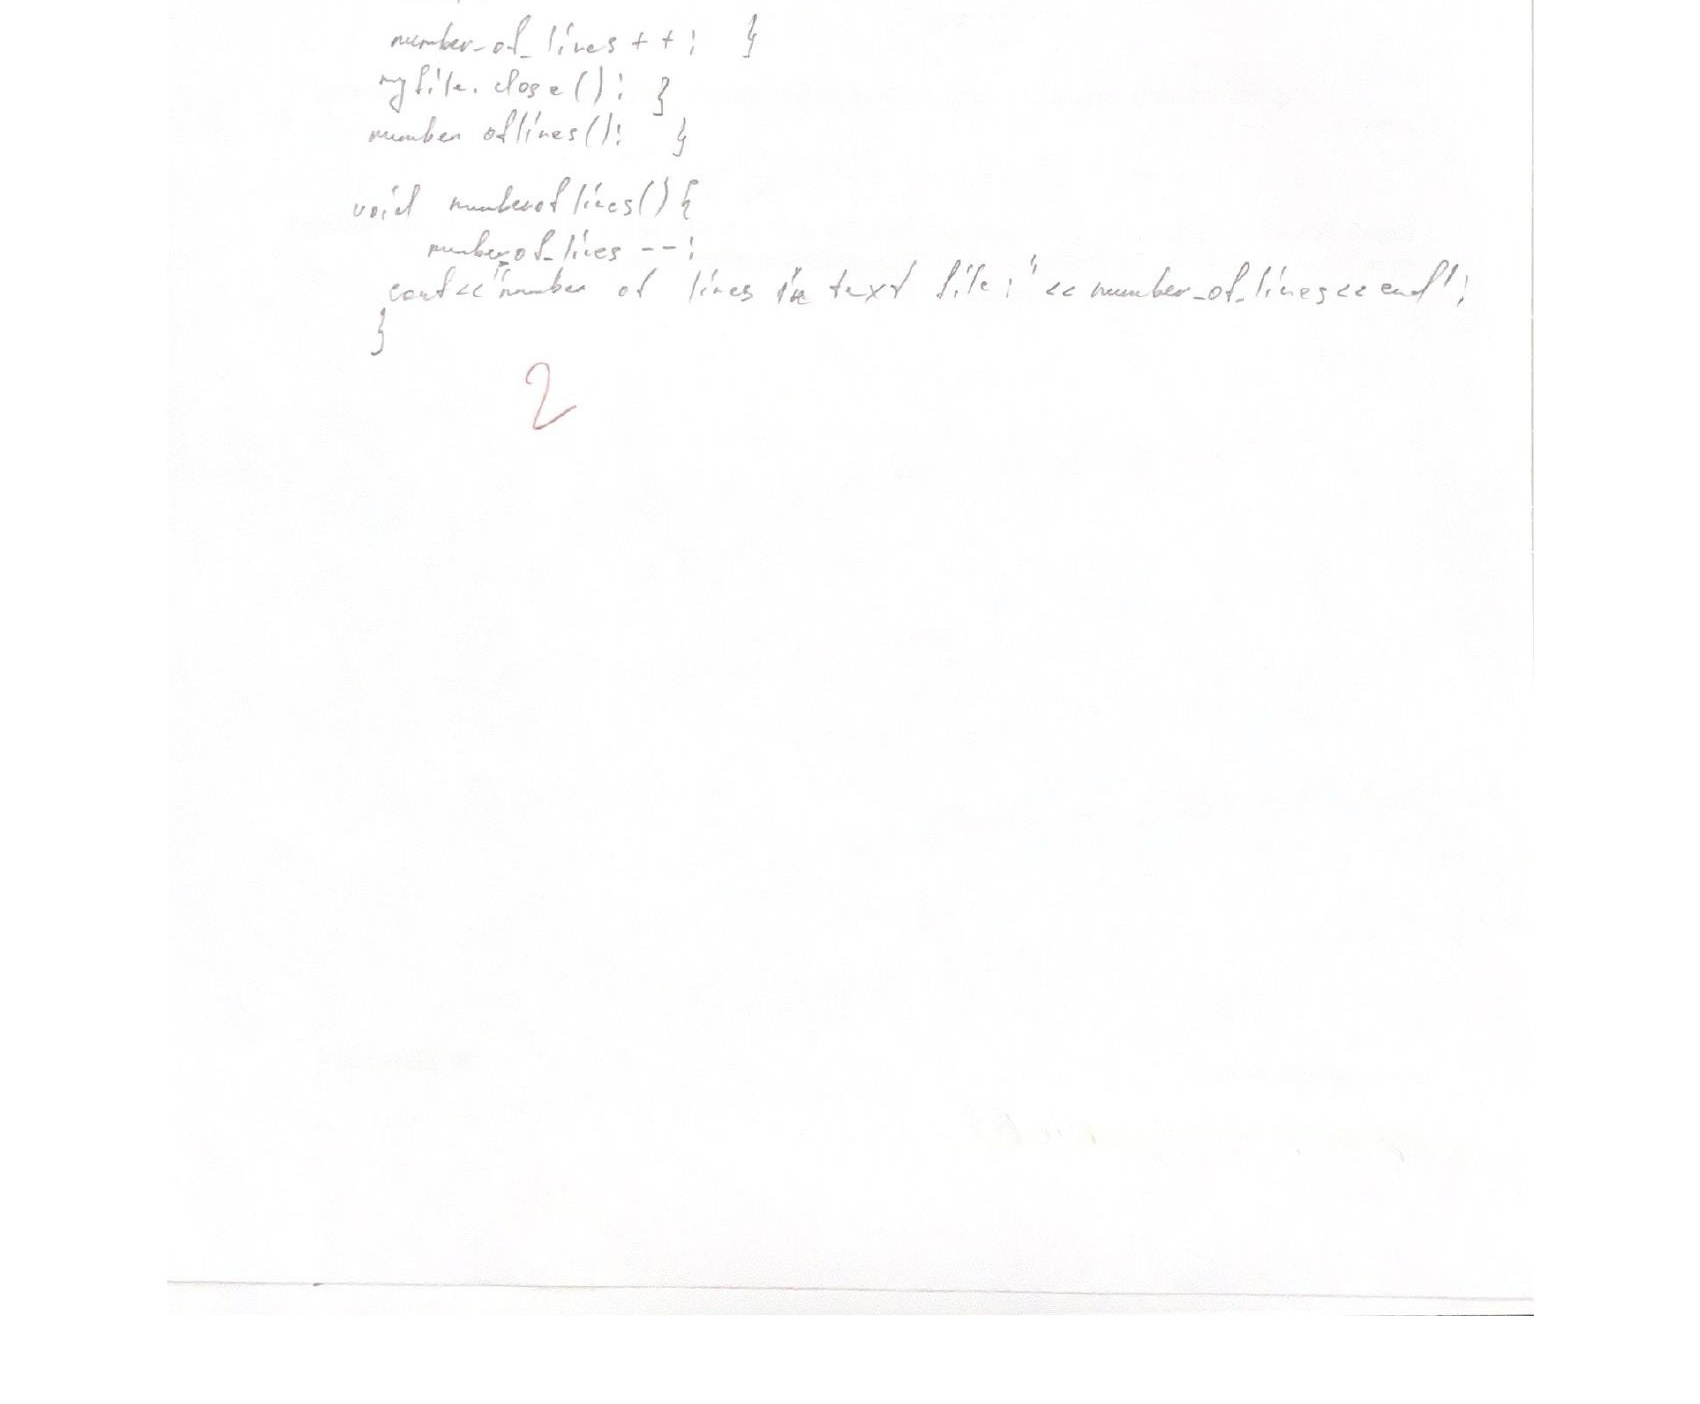 number_of_lines ++; }
myfile.close(); }
number oflines(); }
void numberoflines(){
number_of_lines --;
cout<<"number of lines in text file:"<< number_of_lines<< endl;
}
2